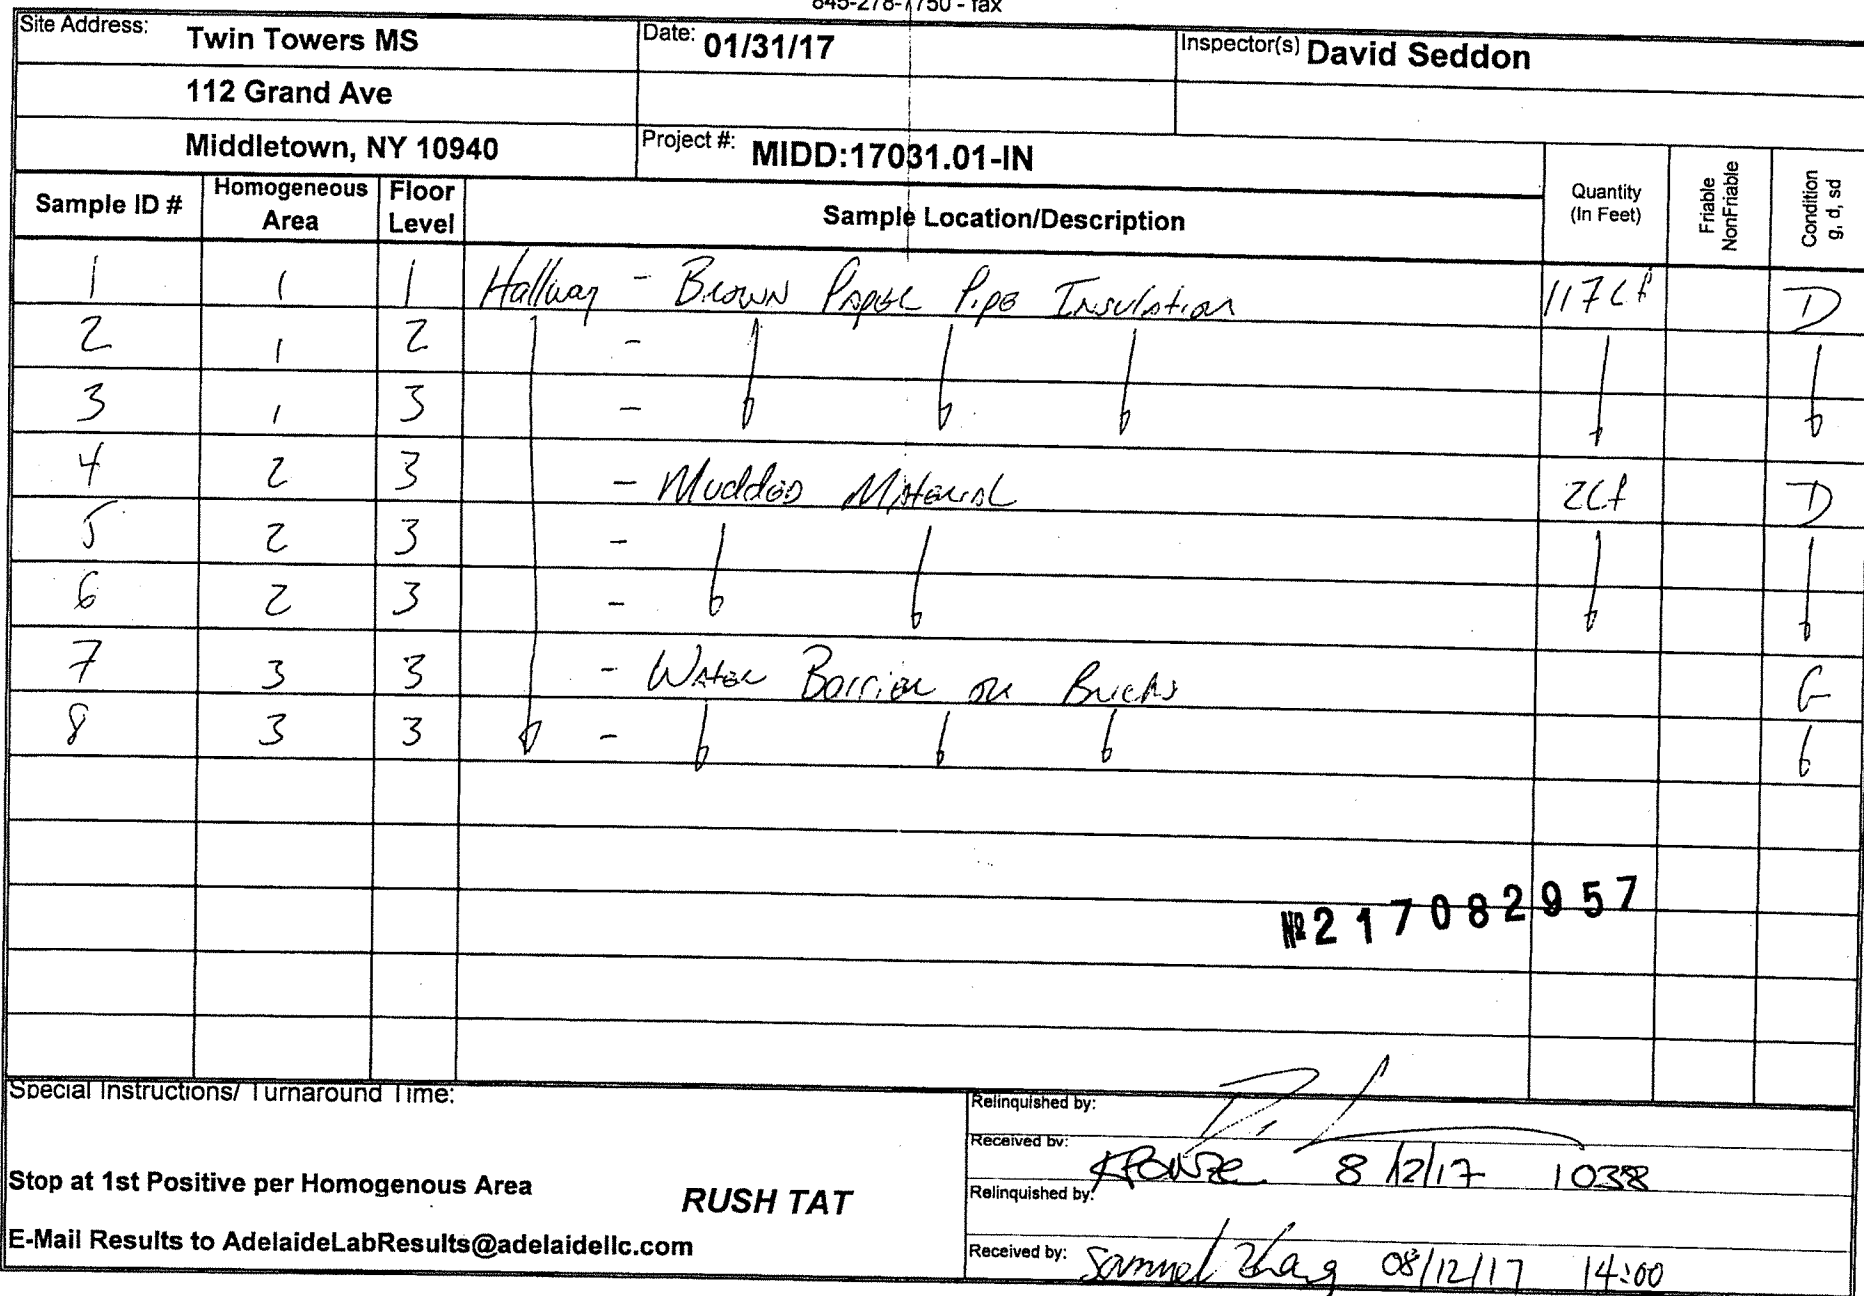 845-278-7750 - fax
Site Address: Twin Towers MS Date: 01/31/17 Inspector(s) David Seddon
112 Grand Ave
Middletown, NY 10940 Project #: MIDD:17031.01-IN
Sample ID # Homogeneous Area Floor Level Sample Location/Description Quantity (In Feet) Friable NonFriable Condition g, d, sd
1 1 1 Hallway - Brown Paper Pipe Insulation 117 Lf D
2 1 2 -
3 1 3 -
4 2 3 - Mudded Material 2Lf D
5 2 3 -
6 2 3 -
7 3 3 - Water Barrier on Bricks G
8 3 3 -
№217082957
Special Instructions/ Turnaround Time:
Stop at 1st Positive per Homogenous Area
RUSH TAT
E-Mail Results to AdelaideLabResults@adelaidellc.com
Relinquished by:
Received by: 8/12/17 1038
Relinquished by:
Received by: Samuel Zhang 08/12/17 14:00